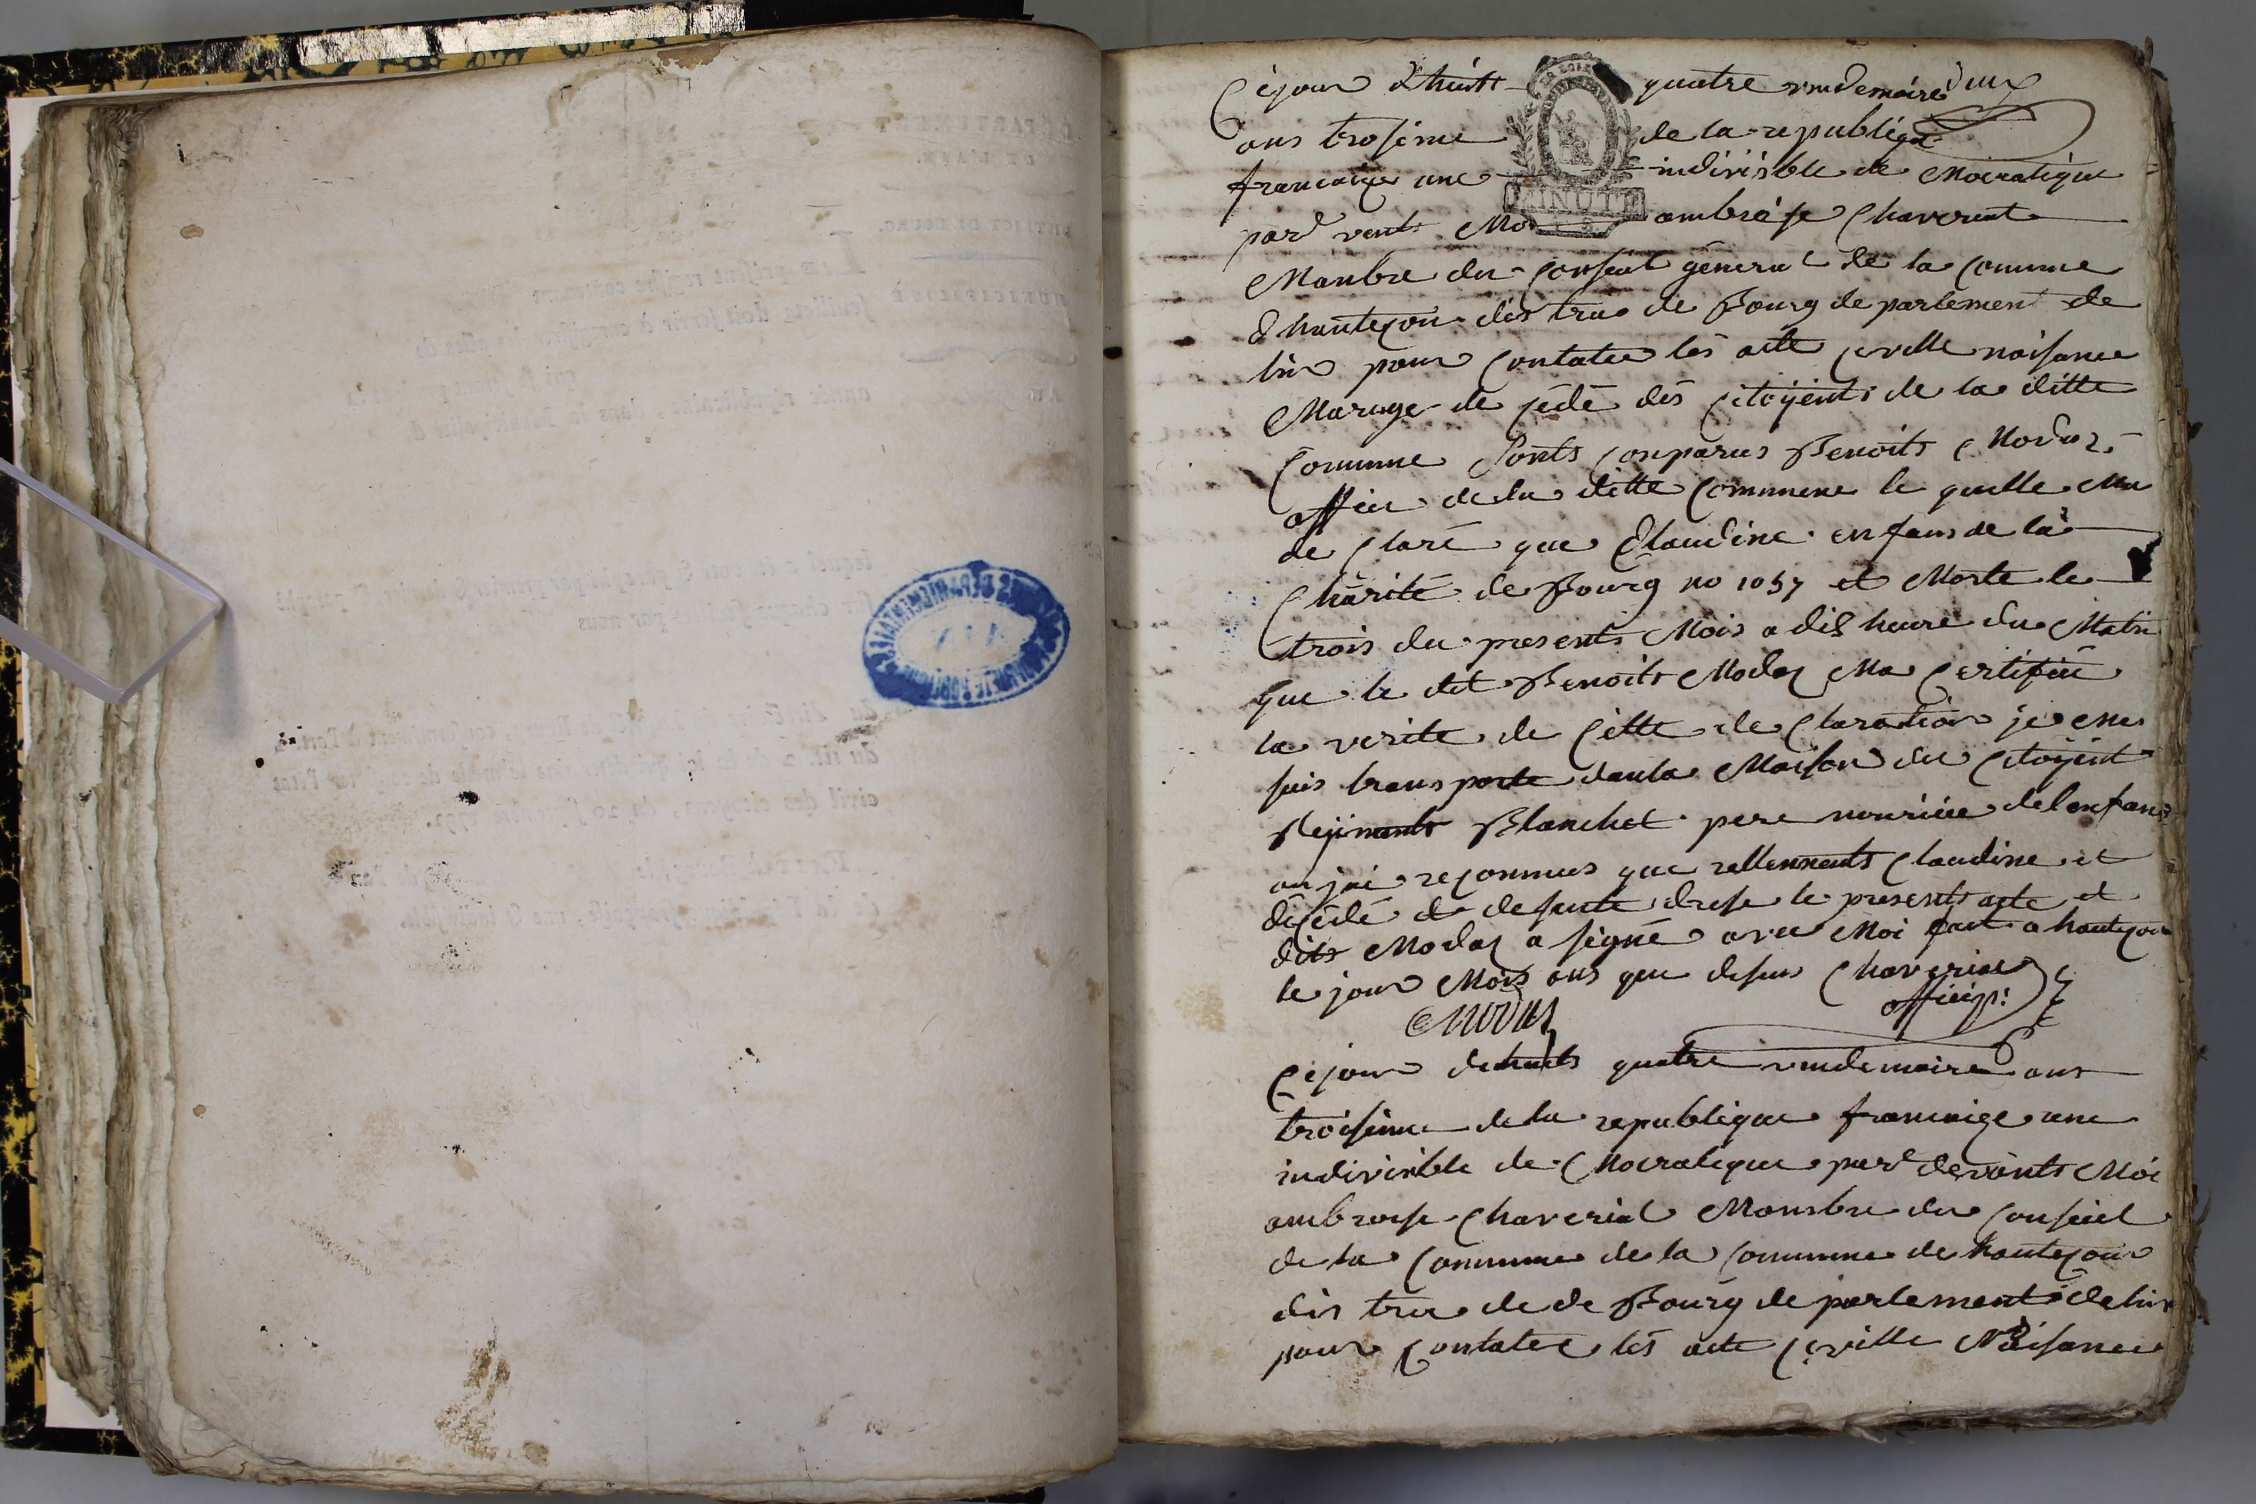 Cejour dhuits quatre vendemaire deux
ans trosieme de la republique
francaige une indivisble de Mocratique
par vents Moi ambroise Chaveriat
Manbre du Conseul géneral de la Comune
d hauteçour dis true de Bourg de partement de
lin pour Contatee lés acte çeville naisance
Mariage de çédé dés Citoÿents de la ditte
Commune Sonts Conparus Benoits Modas
offiee de la ditte Commune le quelle Ma
de Claré que Claudine enfans de la
Chârité de Bourg no 1057 et Morte le
trois du presents Mois a dis heure du Matin
que le dit Benoits Modas Ma Certifiee
la verite de Cette de Claration je me
suis transporte danla Maison du Citoÿent
Blanchet pere nouriciee delenfans
ou jai reconnus que rellements Claudine et
déçédé de desuite drese le presents acte et
dits Modas a signé avec Moi fait a hauteçour
le jour Mois ans que desus Chaveriat
Modas officip:
Cejour dehuits quatre vendemaire ans
troisieme de la republique francaige une
indivisible de Mocratique par devants Moi
ambroise Chaveriat Manbre du Conseiel
de la Commune de la Commune de hauteçour
dis true de de Bourg de partements de lin
pour Contatee lés acte çeville Naisance
MINUTE